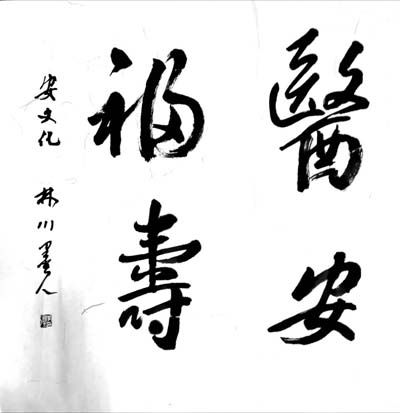 醫安
福壽
安文化 林川墨人